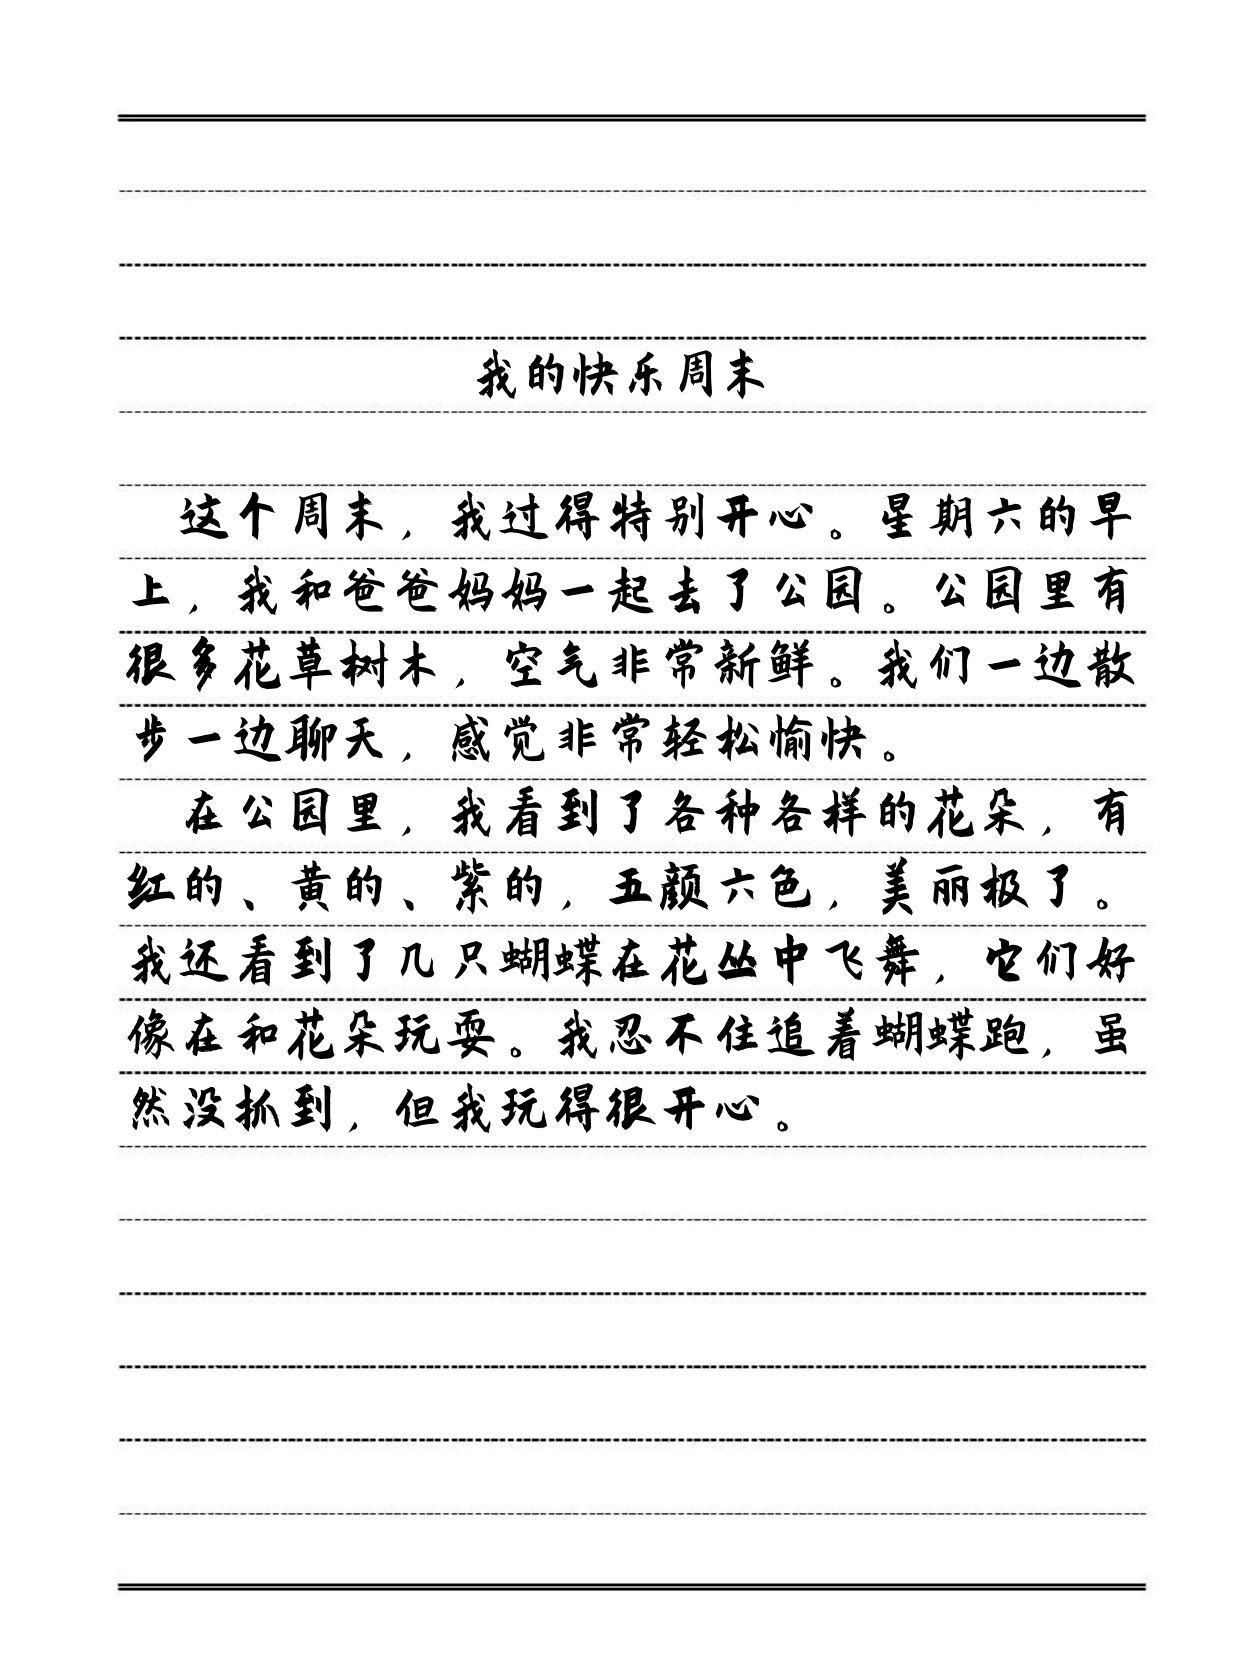 我的快乐周末
这个周末，我过得特别开心。星期六的早
上，我和爸爸妈妈一起去了公园。公园里有
很多花草树木，空气非常新鲜。我们一边散
步一边聊天，感觉非常轻松愉快。
在公园里，我看到了各种各样的花朵，有
红的、黄的、紫的，五颜六色，美丽极了。
我还看到了几只蝴蝶在花丛中飞舞，它们好
像在和花朵玩耍。我忍不住追着蝴蝶跑，虽
然没抓到，但我玩得很开心。